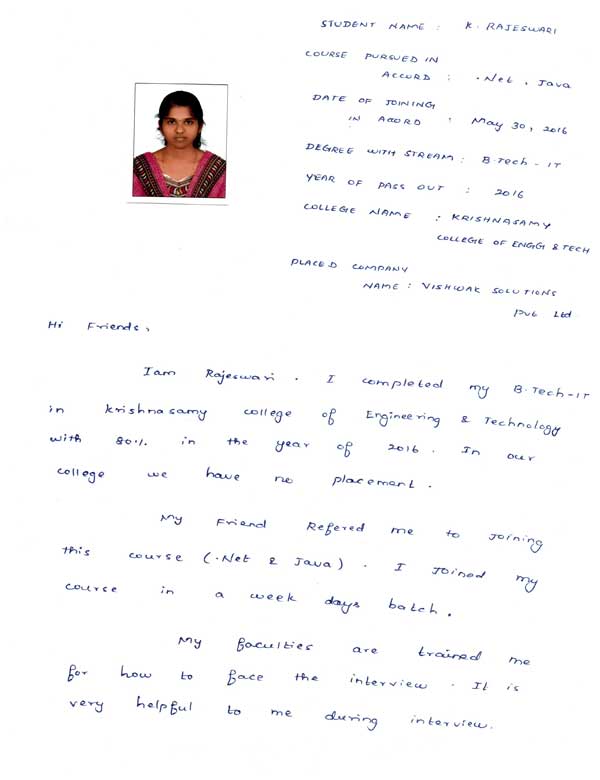 STUDENT NAME : K. RAJESWARI
COURSE PURSUED IN
ACCORD : .Net, Java
DATE OF JOINING
IN ACCORD : May 30, 2016
DEGREE WITH STREAM : B.Tech - IT
YEAR OF PASS OUT : 2016
COLLEGE NAME : KRISHNASAMY
COLLEGE OF ENGG & TECH
PLACED COMPANY
NAME : VISHWAK SOLUTIONS
Pvt Ltd
Hi Friends,
Iam Rajeswari. I completed my B.Tech-IT
in krishnasamy college of Engineering & Technology
with 80% in the year of 2016. In our
college we have no placement.
My Friend Refered me to joining
this course (.Net & Java). I joined my
course in a week days batch.
My faculties are trained me
for how to face the interview. It is
very helpful to me during interview.